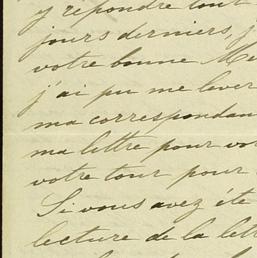 y répondre tout
jours derniers, j
votre bonne
j'ai pu me lever
ma correspondan
ma lettre pour vo
votre tour pour
Si vous avez été
lecture de la lett